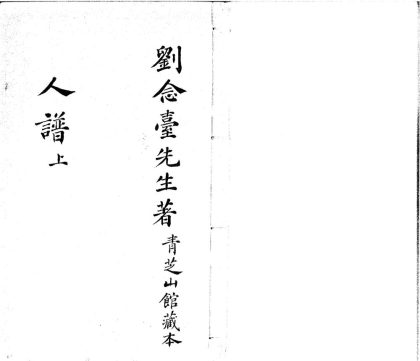 劉念臺先生著青芝山館藏本
人譜上